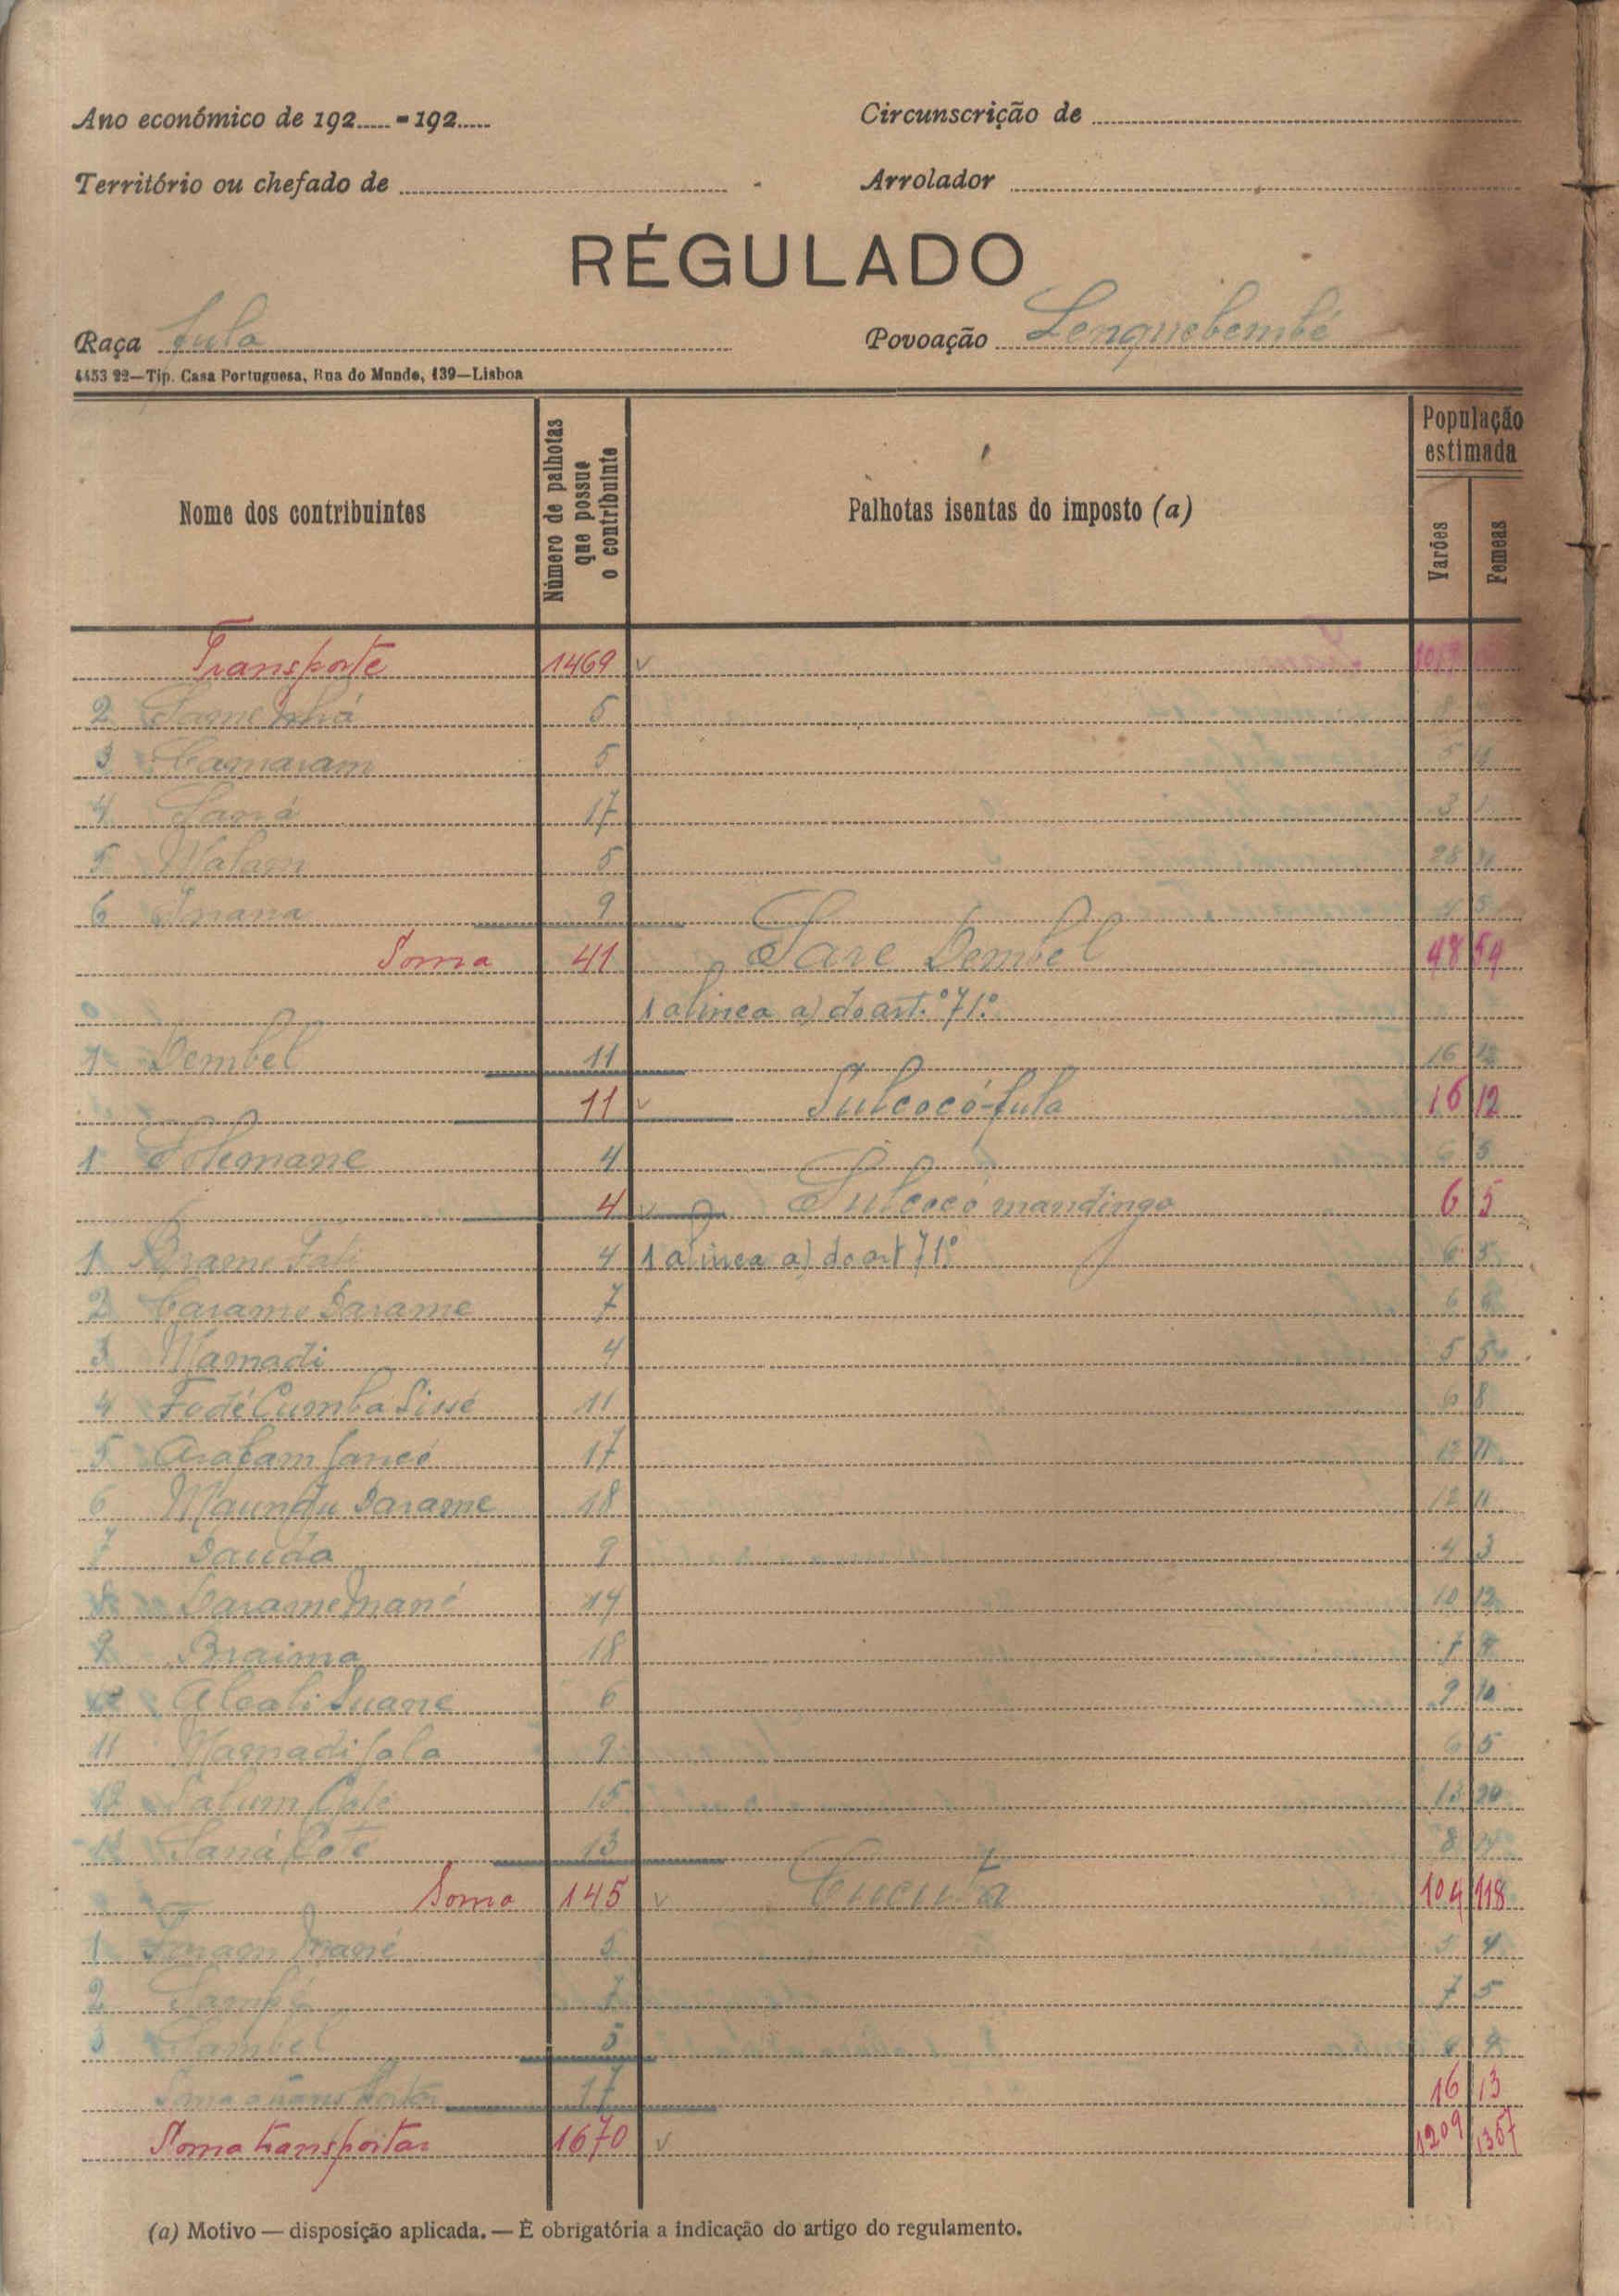 Ano económico de 192..... - 192.....
Circunscrição de
Território ou chefado de
Arrolador
RÉGULADO
Raça Fula
Povoação Lenquebembé
4453 22—Tip. Casa Portuguesa, Rua do Mundo, 139—Lisboa
Nome dos contribuintes
Número de palhotas que possue o contribuinte
Palhotas isentas do imposto (a)
População estimada
Varões
Femeas
Transporte 1469 v
2 5
3 Camaram 5 5 4
4 Saná 17 3
5 Malam 5
6 9
Soma 41 Sare Dembel 48 59
1 alinea a) do art.º 71º
1 Dembel 11 16 12
11 v Sulcocó-fula 16 12
1 Solemane 4 6 5
4 v Sulcocó mandingo 6 5
1 4 1 alinea a) do art 71º 6 5
2 Caramo Darame 7 6 6
3 Mamadi 4 5 5
4 Fodé Cumba Sissé 11 6 8
5 Arafam 17 12 11
6 Maundu Darame 18 12 11
7 Dauda 9 4 3
8 Darame Mané 14 10 12
9 Braima 18
10 Alcali Suane 6 9 10
11 Mamadi 9 6 5
12 Salum 15 13 20
13 Saná 13 8 14
Soma 145 v Cucuta 104 118
1 Mané 5 5 4
2 7 7 5
3 Sambel 5 4 4
17 16 13
Soma transportar 1670 v 1209 1357
(a) Motivo — disposição aplicada. — É obrigatória a indicação do artigo do regulamento.